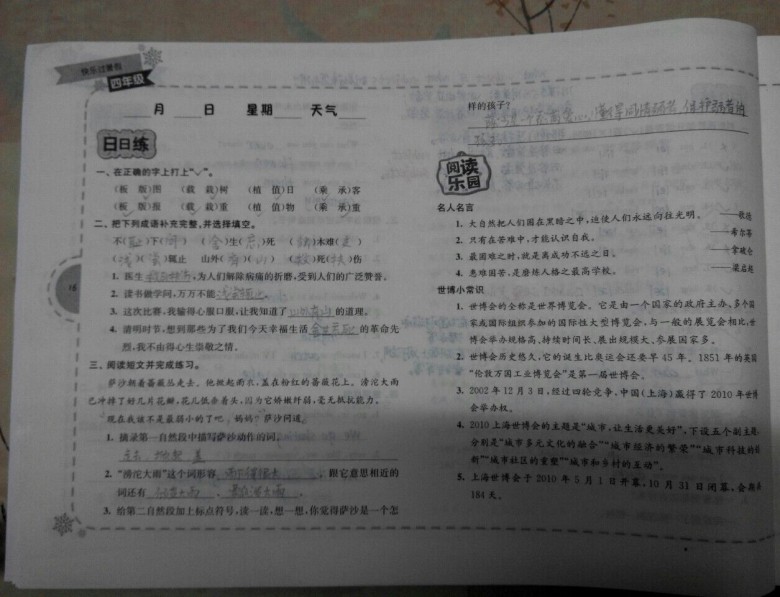 快乐过暑假
四年级
月 日 星期 天气
日日练
一、在正确的字上打上“✓”。
(板 版)图 (载 栽)树 (植 值)日 (乘 承)客
(板 版)报 (载 栽)重 (植 值)物 (乘 承)重
二、把下列成语补充完整,并选择填空。
不(耻)下(问) (舍)生(忘)死 ( )木难( )
(浅)(尝)辄止 山外(有)(山) (救)死(扶)伤
1. 医生救死扶伤,为人们解除病痛的折磨,受到人们的广泛赞誉。
2. 读书做学问,万万不能浅尝辄止。
3. 这次比赛,我输得心服口服,让我知道了山外有山的道理。
4. 清明时节,想到那些为了我们今天幸福生活舍生忘死的革命先
烈,我不由得心生崇敬之情。
三、阅读短文并完成练习。
萨沙朝着蔷薇丛走去。他掀起雨衣,盖在粉红的蔷薇花上。滂沱大雨
已冲掉了好几片花瓣,花儿低垂着头,因为它娇嫩纤弱,毫无抵抗能力。
现在我该不是最弱小的了吧,妈妈?萨沙问道
1. 摘录第一自然段中描写萨沙动作的词。
走去 掀起 盖
2. “滂沱大雨”这个词形容雨下得很大,跟它意思相近的
词还有 倾盆大雨、
3. 给第二自然段加上标点符号,读一读,想一想,你觉得萨沙是一个怎
16
样的孩子?
阅读乐园
名人名言
1. 大自然把人们困在黑暗之中,迫使人们永远向往光明。 ——歌德
2. 只有在苦难中,才能认识自我。 ——希尔蒂
3. 最困难之时,就是离成功不远之日。 ——拿破仑
4. 患难困苦,是磨炼人格之最高学校。 ——梁启超
世博小常识
1. 世博会的全称是世界博览会。它是由一个国家的政府主办、多个国
家或国际组织参加的国际性大型博览会,与一般的展览会相比,世
博会举办规格高、持续时间长、展出规模大、参展国家多。
2. 世博会历史悠久,它的诞生比奥运会还要早 45 年。1851 年的英国
“伦敦万国工业博览会”是第一届世博会。
3. 2002 年 12 月 3 日,经过四轮竞争,中国(上海)赢得了 2010 年世博
会举办权。
4. 2010 上海世博会的主题是“城市,让生活更美好”,下设五个副主题,
分别是“城市多元文化的融合”“城市经济的繁荣”“城市科技的创
新”“城市社区的重塑”“城市和乡村的互动”。
5. 上海世博会于 2010 年 5 月 1 日开幕,10 月 31 日闭幕,会期
184 天。